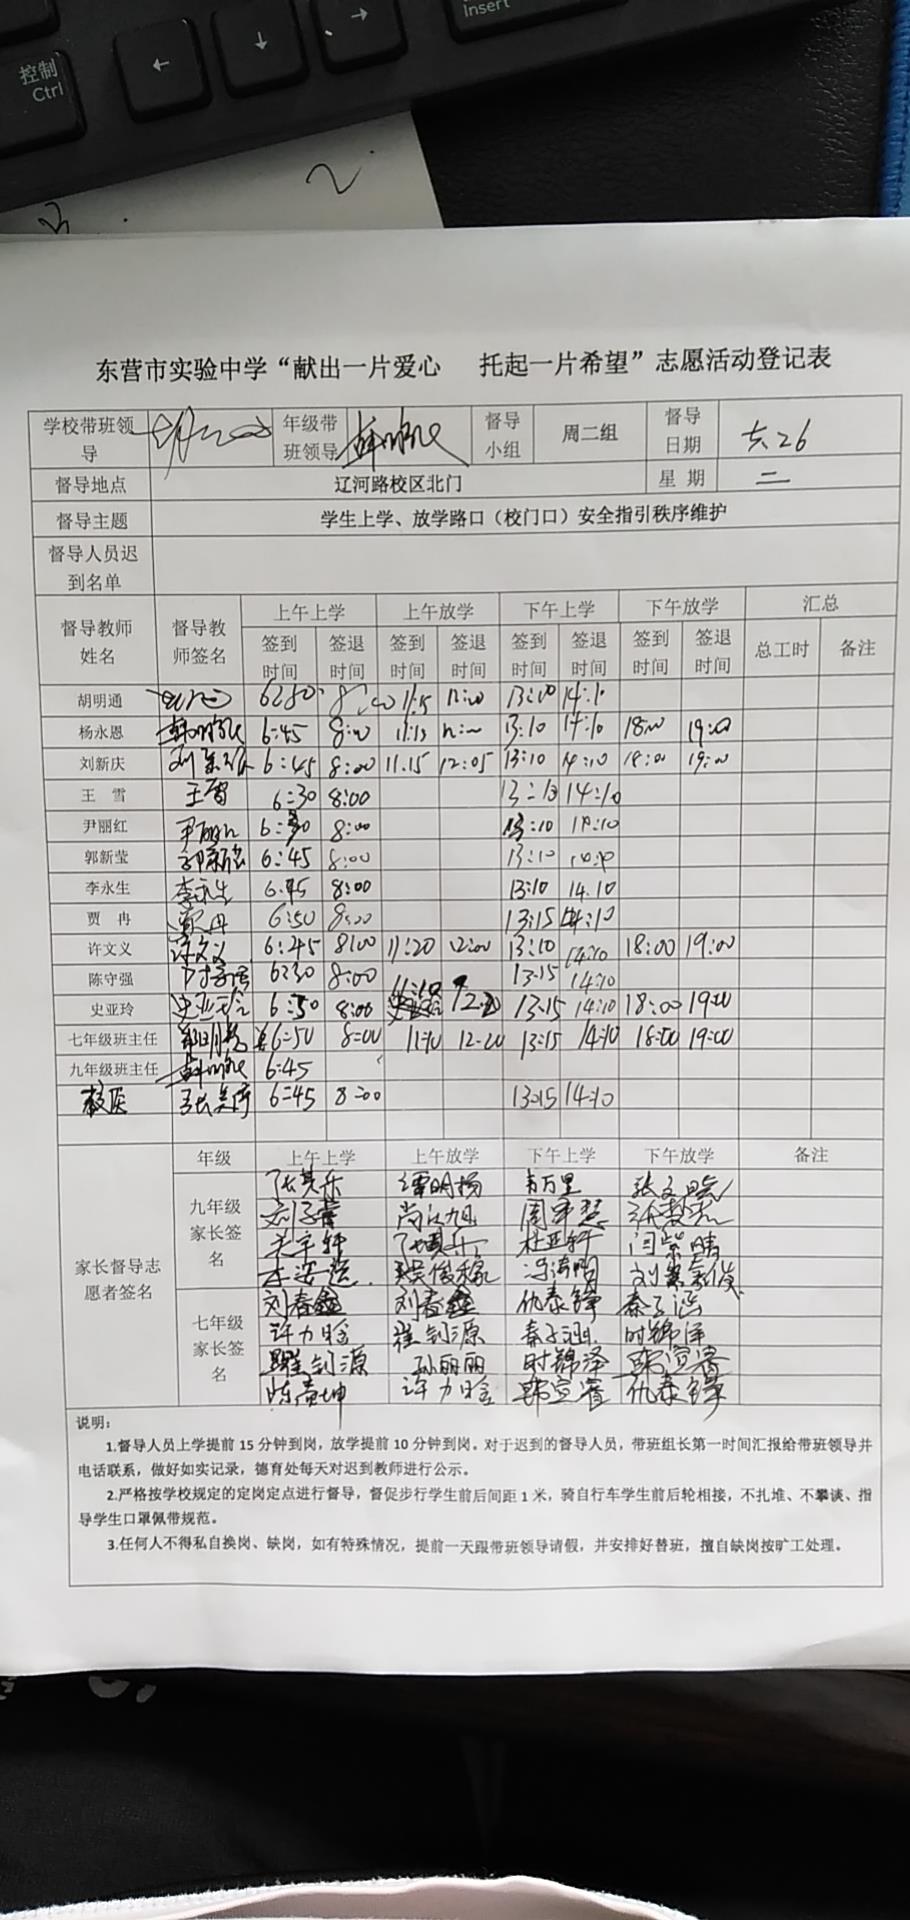 控制
Ctrl
←
↓
→
Insert
2.
东营市实验中学“献出一片爱心 托起一片希望”志愿活动登记表
学校带班领导 年级带班领导 督导小组 周二组 督导日期 5.26
督导地点 辽河路校区北门 星 期 二
督导主题 学生上学、放学路口（校门口）安全指引秩序维护
督导人员迟到名单
督导教师姓名 督导教师签名 上午上学 上午放学 下午上学 下午放学 汇总
签到时间 签退时间 签到时间 签退时间 签到时间 签退时间 签到时间 签退时间 总工时 备注
胡明通 11:15 12:00 13:10 14:10
杨永恩 6:45 8:00 11:15 13:10 14:10 18:00 19:00
刘新庆 6:45 8:00 11.15 12:05 13:10 14:10 18:00 19:00
王 雪 王雪 6:30 8:00 13:10 14:10
尹丽红 尹丽红 6:30 8:00 13:10 14:10
郭新莹 郭新莹 6:45 8:00 13:10 14:10
李永生 李永生 6:45 8:00 13:10 14.10
贾 冉 贾冉 6:50 8:00 13:15 14:10
许文义 许文义 6:45 8:00 11:20 12:00 13:10 14:10 18:00 19:00
陈守强 6:30 8:00 13:15 14:10
史亚玲 史亚玲 6:50 8:00 11:10 12:20 13:15 14:10 18:00 19:00
七年级班主任 6:50 8:00 11:10 12:20 13:15 14:10 18:00 19:00
九年级班主任 6:45
校医 6:45 8:00 13:15 14:10
家长督导志愿者签名 年级 上午上学 上午放学 下午上学 下午放学 备注
九年级家长签名 张其乐 谭明扬 韦万里
刘子蕾 尚江旭
关宇轩 张其乐 杜亚轩 闫紫晴
七年级家长签名 刘春鑫 刘春鑫 仇泰铮 秦子涵
许力晗 崔钊源 秦子涵 时锦泽
崔钊源 孙丽丽 时锦泽 韩宣睿
陈贵坤 许力晗 韩宣睿 仇泰铮
说明：
1.督导人员上学提前 15 分钟到岗，放学提前 10 分钟到岗。对于迟到的督导人员，带班组长第一时间汇报给带班领导并
电话联系，做好如实记录，德育处每天对迟到教师进行公示。
2.严格按学校规定的定岗定点进行督导，督促步行学生前后间距 1 米，骑自行车学生前后轮相接，不扎堆、不攀谈、指
导学生口罩佩带规范。
3.任何人不得私自换岗、缺岗，如有特殊情况，提前一天跟带班领导请假，并安排好替班，擅自缺岗按旷工处理。